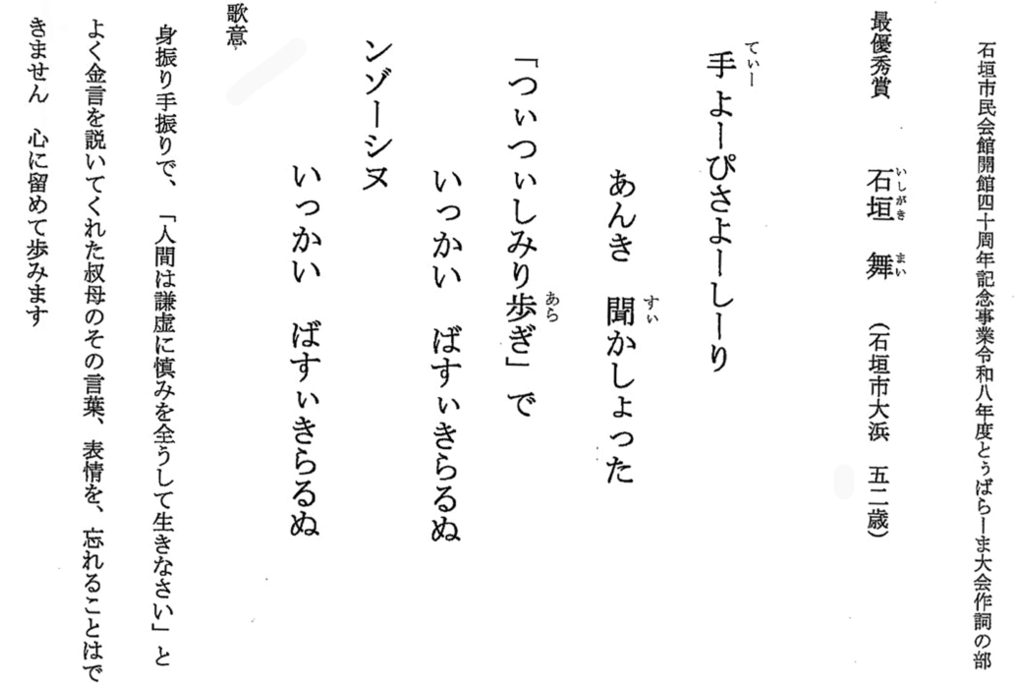 石垣市民会館開館四十周年記念事業令和八年度とぅばらーま大会作詞の部
最優秀賞　石垣　舞　（石垣市大浜　五二歳）
いしがき　まい
手よーぴさよーしーり
てぃー
あんき　聞かしょった
すぃ
「つぃつぃしみり歩ぎ」で
あら
いっかい　ばすぃきらるぬ
ンゾーシヌ
いっかい　ばすぃきらるぬ
歌意
身振り手振りで、「人間は謙虚に慎みを全うして生きなさい」と
よく金言を説いてくれた叔母のその言葉、表情を、忘れることはで
きません　心に留めて歩みます